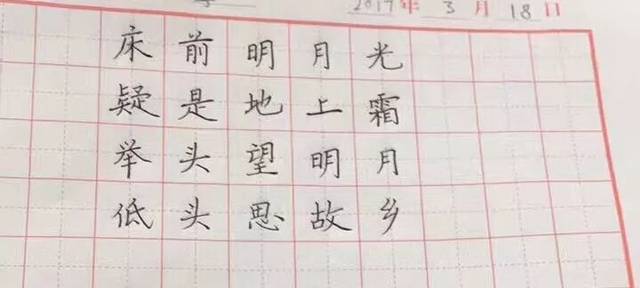 2017年 3月 18日
床前明月光
疑是地上霜
举头望明月
低头思故乡